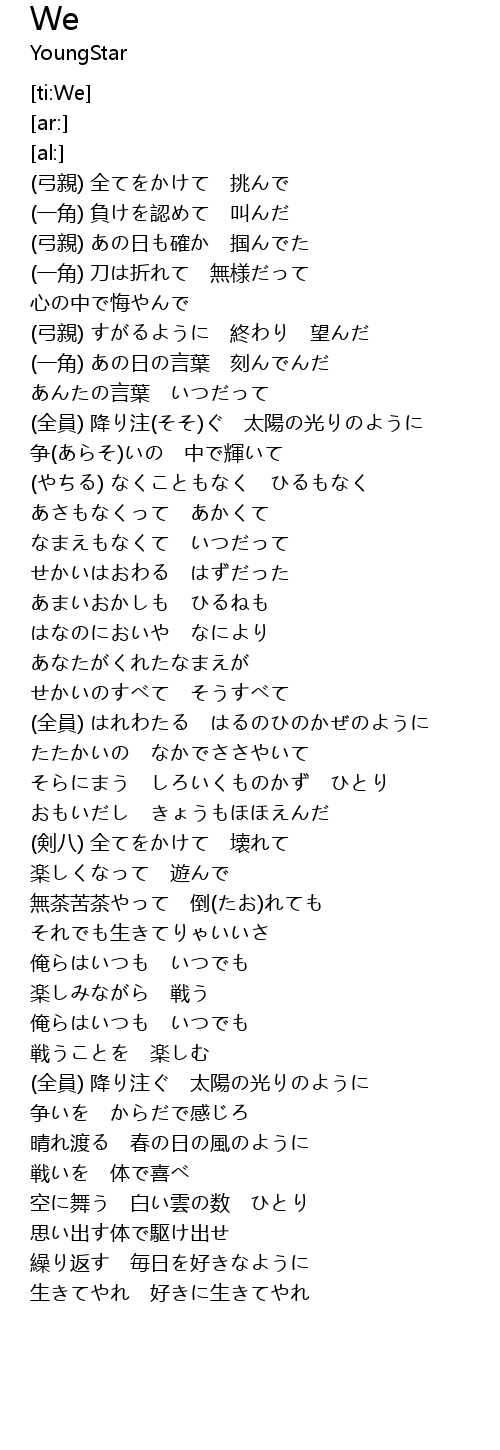 We
YoungStar
[ti:We]
[ar:]
[al:]
(弓親) 全てをかけて　挑んで
(一角) 負けを認めて　叫んだ
(弓親) あの日も確か　掴んでた
(一角) 刀は折れて　無様だって
心の中で悔やんで
(弓親) すがるように　終わり　望んだ
(一角) あの日の言葉　刻んでんだ
あんたの言葉　いつだって
(全員) 降り注(そそ)ぐ　太陽の光りのように
争(あらそ)いの　中で輝いて
(やちる) なくこともなく　ひるもなく
あさもなくって　あかくて
なまえもなくて　いつだって
せかいはおわる　はずだった
あまいおかしも　ひるねも
はなのにおいや　なにより
あなたがくれたなまえが
せかいのすべて　そうすべて
(全員) はれわたる　はるのひのかぜのように
たたかいの　なかでささやいて
そらにまう　しろいくものかず　ひとり
おもいだし　きょうもほほえんだ
(剣八) 全てをかけて　壊れて
楽しくなって　遊んで
無茶苦茶やって　倒(たお)れても
それでも生きてりゃいいさ
俺らはいつも　いつでも
楽しみながら　戦う
俺らはいつも　いつでも
戦うことを　楽しむ
(全員) 降り注ぐ　太陽の光りのように
争いを　からだで感じろ
晴れ渡る　春の日の風のように
戦いを　体で喜べ
空に舞う　白い雲の数　ひとり
思い出す体で駆け出せ
繰り返す　毎日を好きなように
生きてやれ　好きに生きてやれ